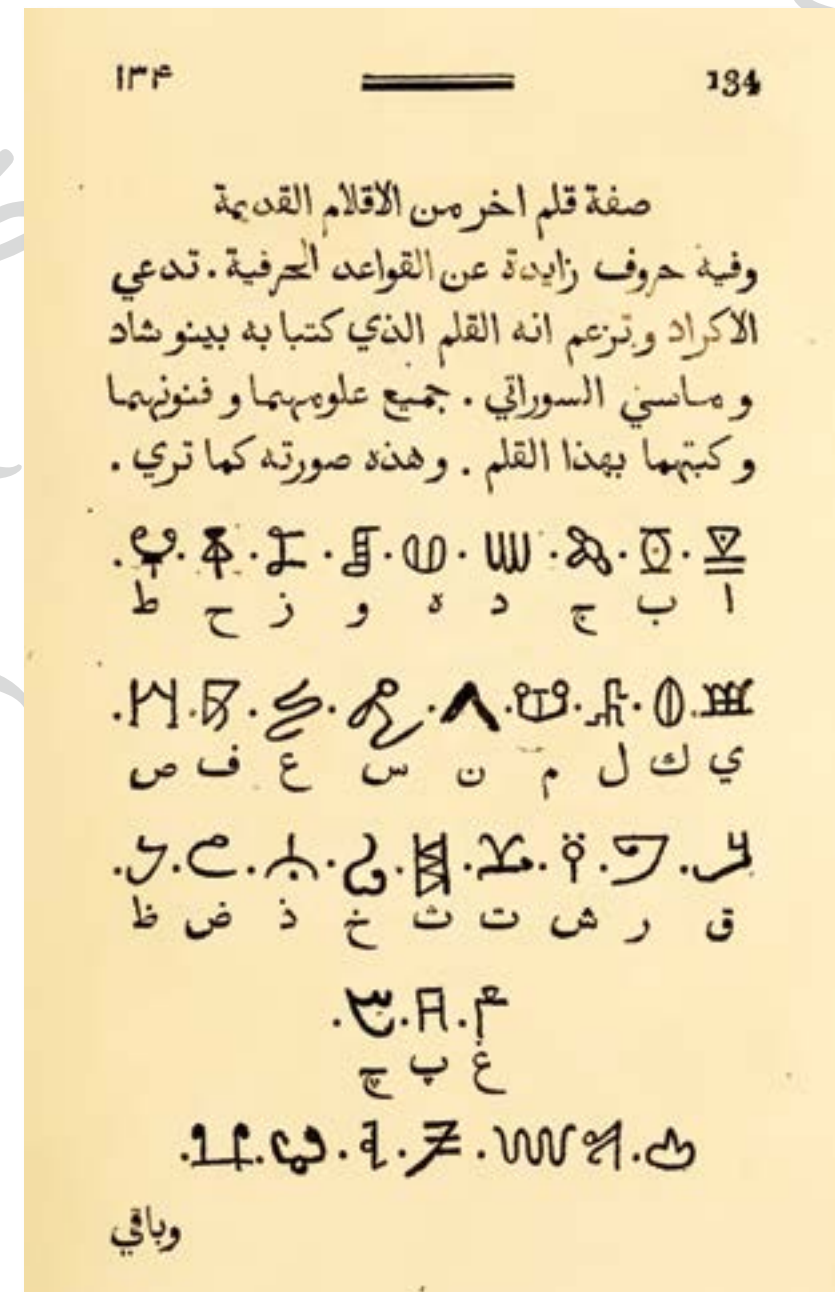 ١٣۴ 134
صفة قلم اخر من الاقلام القديمة
وفيه حروف زايدة عن القواعد الحرفية . تدعي
الاكراد وتزعم انه القلم الذي كتبا به بينو شاد
و ماسي السوراتي . جميع علومهما و فنونهما
و كتبهما بهذا القلم . وهذه صورته كما تري .
ا ب ج د ه و ز ح ط
ي ك ل م ن س ع ف ص
ق ر ش ت ث خ ذ ض ظ
غ پ چ
وباقي